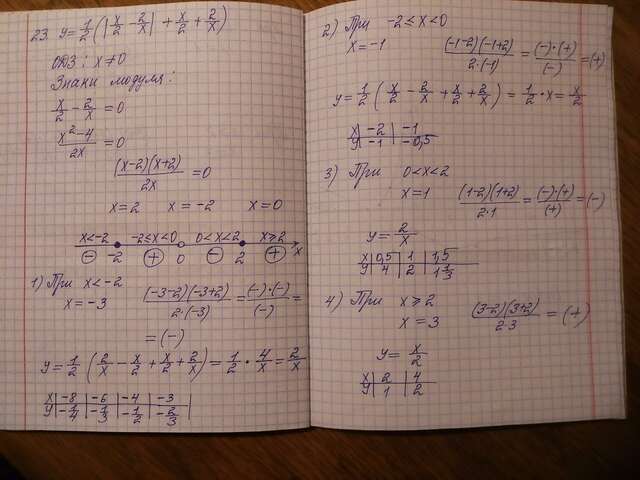 23. y = 1/2 (|x/2 - 2/x| + x/2 + 2/x)
ОДЗ: x ≠ 0
Знаки модуля:
x/2 - 2/x = 0
(x² - 4)/2x = 0
(x-2)(x+2)/2x = 0
x = 2 x = -2 x = 0
x < -2 -2 ≤ x < 0 0 < x < 2 x ≥ 2 x
(-) -2 (+) 0 (-) 2 (+)
1) При x < -2
x = -3 (-3-2)(-3+2)/2·(-3) = (-)·(-)/(-) =
= (-)
y = 1/2 (2/x - x/2 + x/2 + 2/x) = 1/2 · 4/x = 2/x
x | -8 | -6 | -4 | -3
y | -1/4 | -1/3 | -1/2 | -2/3
2) При -2 ≤ x < 0
x = -1 (-1-2)(-1+2)/2·(-1) = (-)·(+)/(-) = (+)
y = 1/2 (x/2 - 2/x + x/2 + 2/x) = 1/2 · x = x/2
x | -2 | -1
y | -1 | -0,5
3) При 0 < x < 2
x = 1 (1-2)(1+2)/2·1 = (-)·(+)/(+) = (-)
y = 2/x
x | 0,5 | 1 | 1,5
y | 4 | 2 | 1 1/3
4) При x ≥ 2
x = 3 (3-2)(3+2)/2·3 = (+)
y = x/2
x | 2 | 4
y | 1 | 2